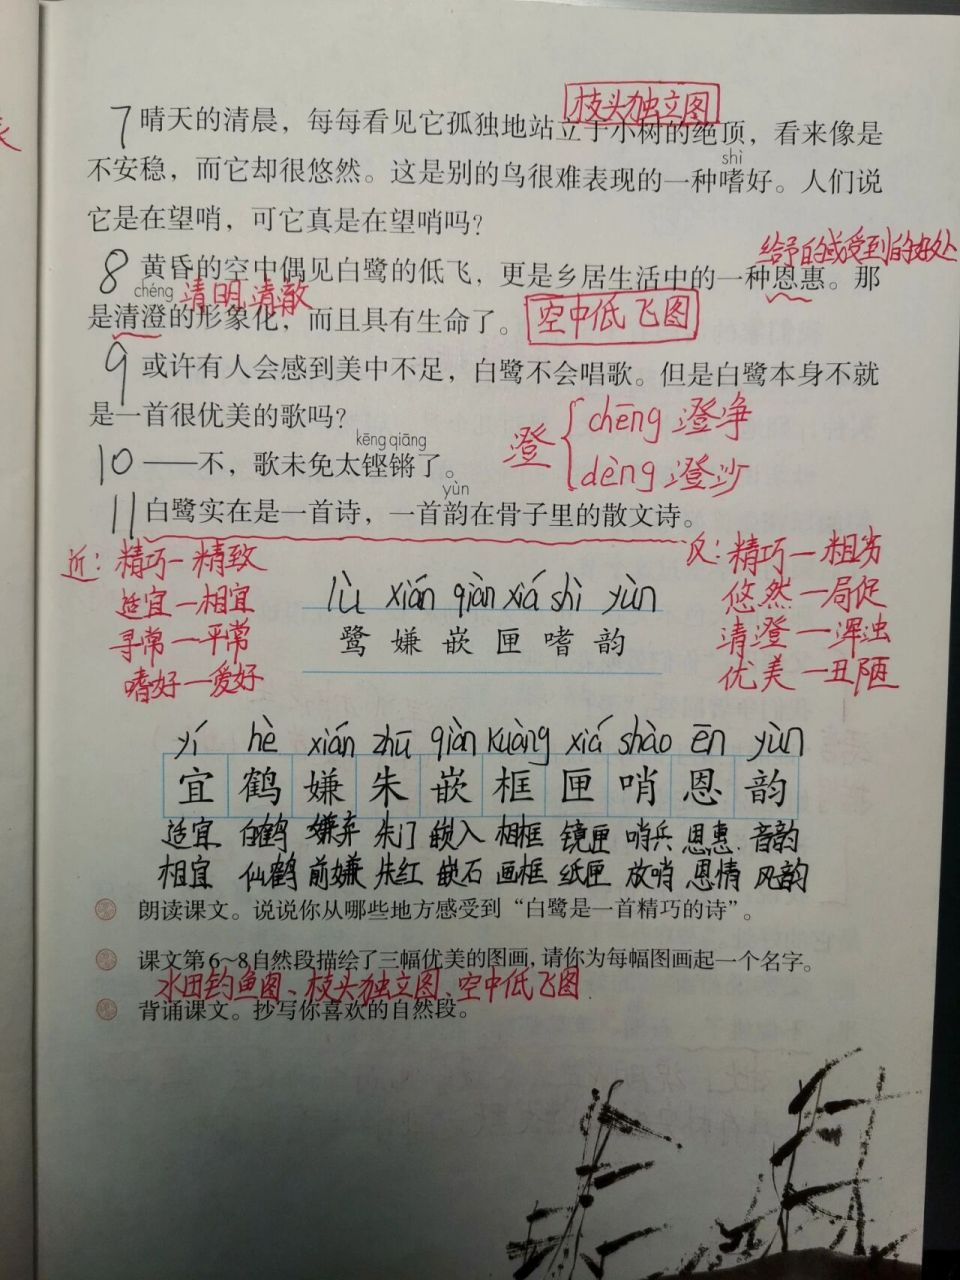 枝头独立图
7 晴天的清晨，每每看见它孤独地站立于小树的绝顶，看来像是
shì
不安稳，而它却很悠然。这是别的鸟很难表现的一种嗜好。人们说
它是在望哨，可它真是在望哨吗？
给予的或受到的好处
8 黄昏的空中偶见白鹭的低飞，更是乡居生活中的一种恩惠。那
chéng 清明 清澈
是清澄的形象化，而且具有生命了。 空中低飞图
9 或许有人会感到美中不足，白鹭不会唱歌。但是白鹭本身不就
是一首很优美的歌吗？
澄 chēng 澄净
dèng 澄沙
kēng qiāng
10 ——不，歌未免太铿锵了。
yùn
11 白鹭实在是一首诗，一首韵在骨子里的散文诗。
近：精巧—精致
适宜—相宜
寻常—平常
嗜好—爱好
反：精巧—粗劣
悠然—局促
清澄—浑浊
优美—丑陋
lù xián qiàn xiá shì yùn
鹭 嫌 嵌 匣 嗜 韵
yí hè xián zhū qiàn kuàng xiá shào ēn yùn
宜 鹤 嫌 朱 嵌 框 匣 哨 恩 韵
适宜 白鹤 嫌弃 朱门 嵌入 相框 镜匣 哨兵 恩惠 音韵
相宜 仙鹤 前嫌 朱红 嵌石 画框 纸匣 放哨 恩情 风韵
朗读课文。说说你从哪些地方感受到“白鹭是一首精巧的诗”。
课文第6~8自然段描绘了三幅优美的图画，请你为每幅图画起一个名字。
水田钓鱼图、枝头独立图、空中低飞图
背诵课文。抄写你喜欢的自然段。